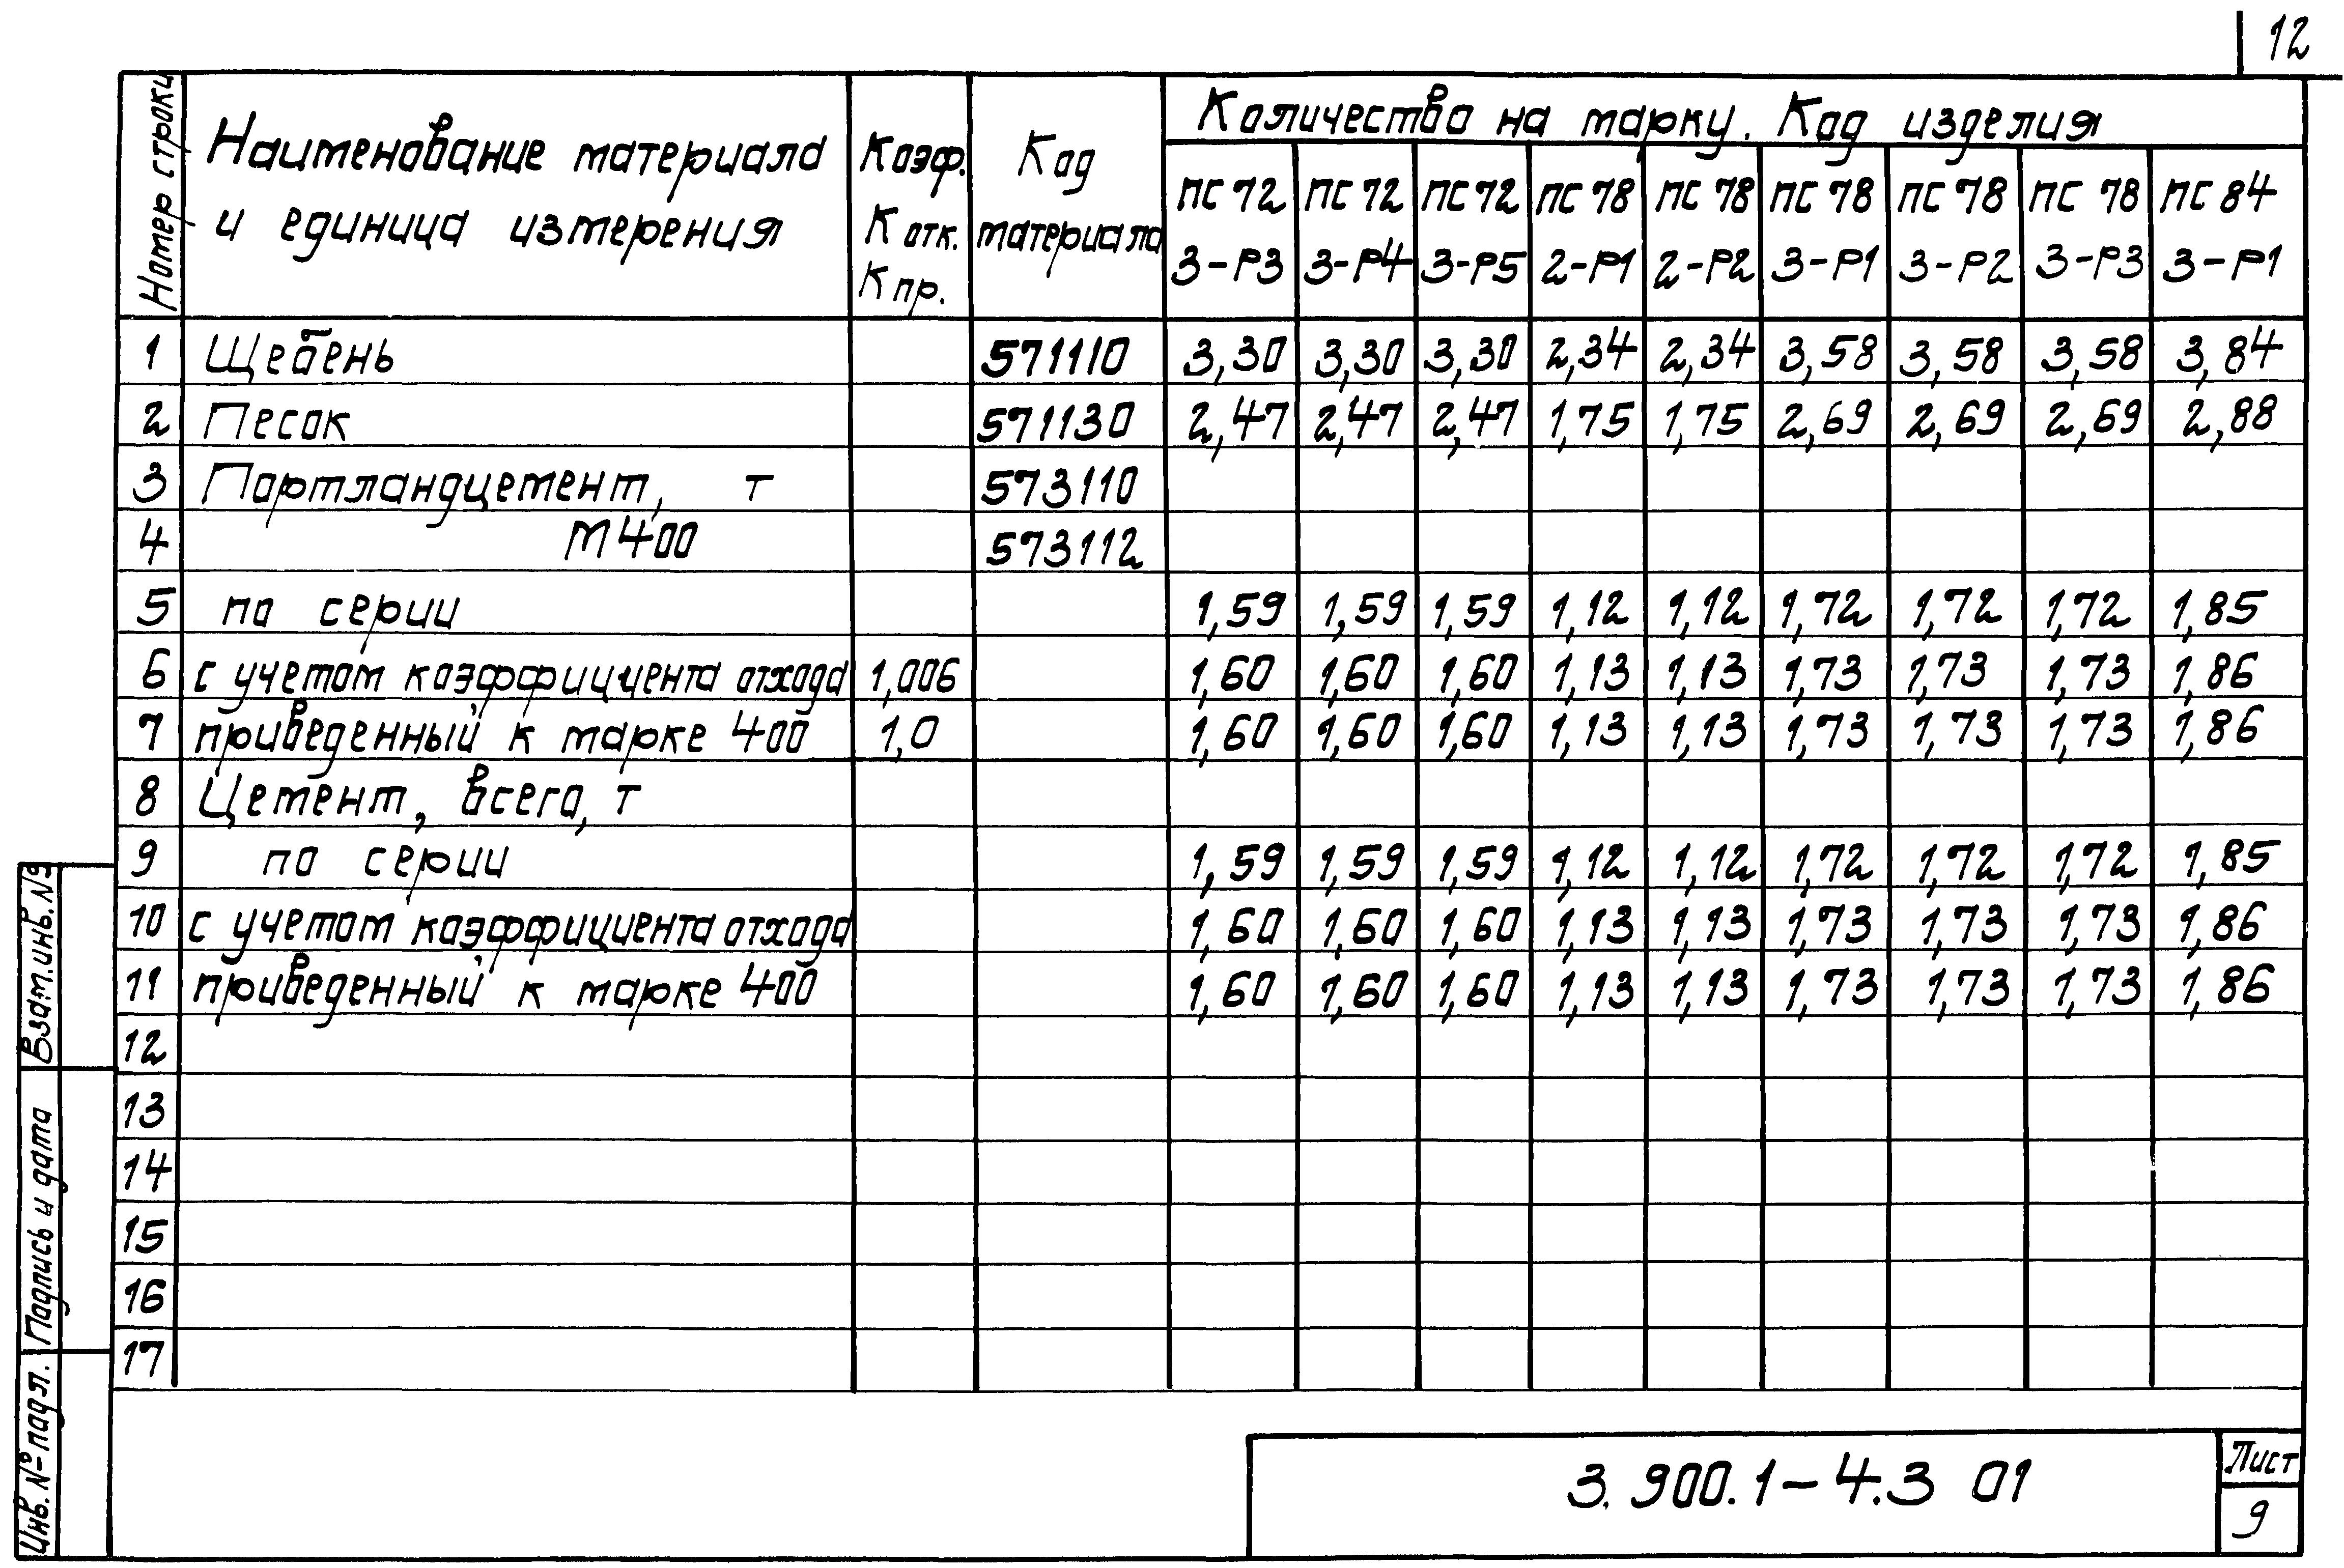 12
Номер строки
Наименование материала
и единица измерения
Коэф.
К отк.
К пр.
Код
материала
Количество на марку. Код изделия
ПС 72 ПС 72 ПС 72 ПС 78 ПС 78 ПС 78 ПС 78 ПС 78 ПС 84
3-Р3 3-Р4 3-Р5 2-Р1 2-Р2 3-Р1 3-Р2 3-Р3 3-Р1
1 Щебень 571110 3,30 3,30 3,30 2,34 2,34 3,58 3,58 3,58 3,84
2 Песок 571130 2,47 2,47 2,47 1,75 1,75 2,69 2,69 2,69 2,88
3 Портландцемент, т 573110
4 М400 573112
5 по серии 1,59 1,59 1,59 1,12 1,12 1,72 1,72 1,72 1,85
6 с учетом коэффициента отхода 1,006 1,60 1,60 1,60 1,13 1,13 1,73 1,73 1,73 1,86
7 приведенный к марке 400 1,0 1,60 1,60 1,60 1,13 1,13 1,73 1,73 1,73 1,86
8 Цемент, всего, т
9 по серии 1,59 1,59 1,59 1,12 1,12 1,72 1,72 1,72 1,85
10 с учетом коэффициента отхода 1,60 1,60 1,60 1,13 1,13 1,73 1,73 1,73 1,86
11 приведенный к марке 400 1,60 1,60 1,60 1,13 1,13 1,73 1,73 1,73 1,86
12
13
14
15
16
17
Взам.инв.№
Подпись и дата
Инв.№ подл.
3.900.1-4.3 01
Лист
9